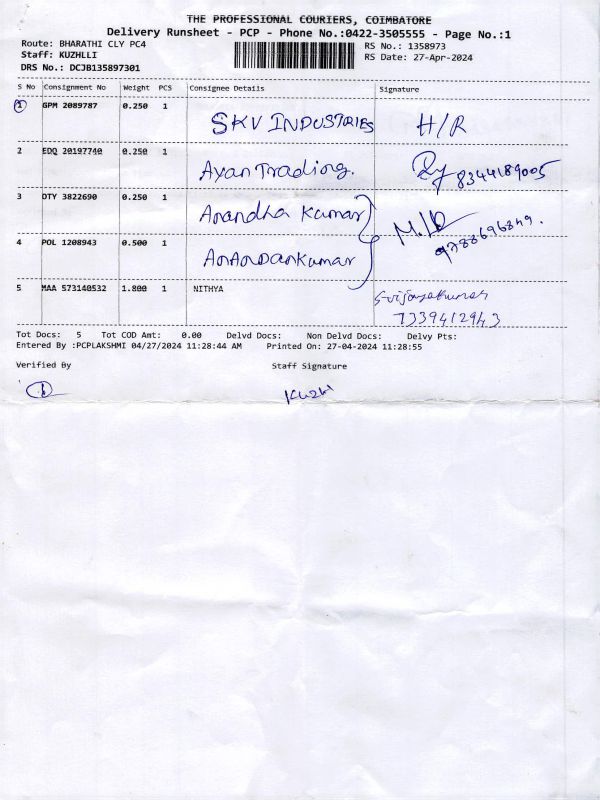 THE PROFESSIONAL COURIERS, COIMBATORE
Delivery Runsheet - PCP - Phone No.:0422-3505555 - Page No.:1
Route: BHARATHI CLY PC4 RS No.: 1358973
Staff: KUZHLLI RS Date: 27-Apr-2024
DRS No.: DCJB135897301
S No Consignment No Weight PCS Consignee Details Signature
1 GPM 2089787 0.250 1 SKV INDUSTRIES H/R
2 EDQ 20197740 0.250 1 Ayan Trading. 8344189005
3 DTY 3822690 0.250 1 Anandha Kumar 9788696849.
4 POL 1208943 0.500 1 AnAnDankumar
5 MAA 573140532 1.800 1 NITHYA
7339412943
Tot Docs: 5 Tot COD Amt: 0.00 Delvd Docs: Non Delvd Docs: Delvy Pts:
Entered By :PCPLAKSHMI 04/27/2024 11:28:44 AM Printed On: 27-04-2024 11:28:55
Verified By Staff Signature
Kuzhl